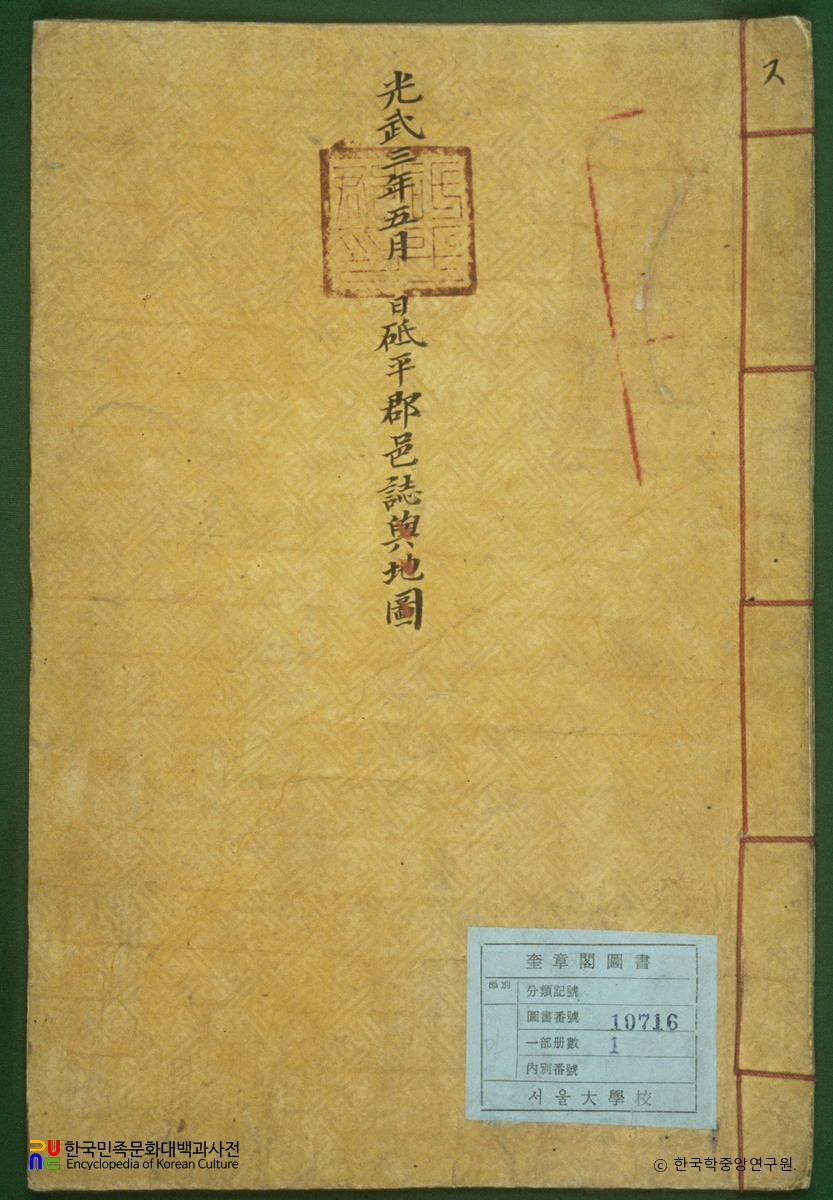 光武三年五月 日砥平郡邑誌輿地圖
ス
奎章閣圖書
部別
分類記號
圖書番號 10716
一部册數 1
內別番號
서울大學校
한국민족문화대백과사전
Encyclopedia of Korean Culture
ⓒ 한국학중앙연구원.